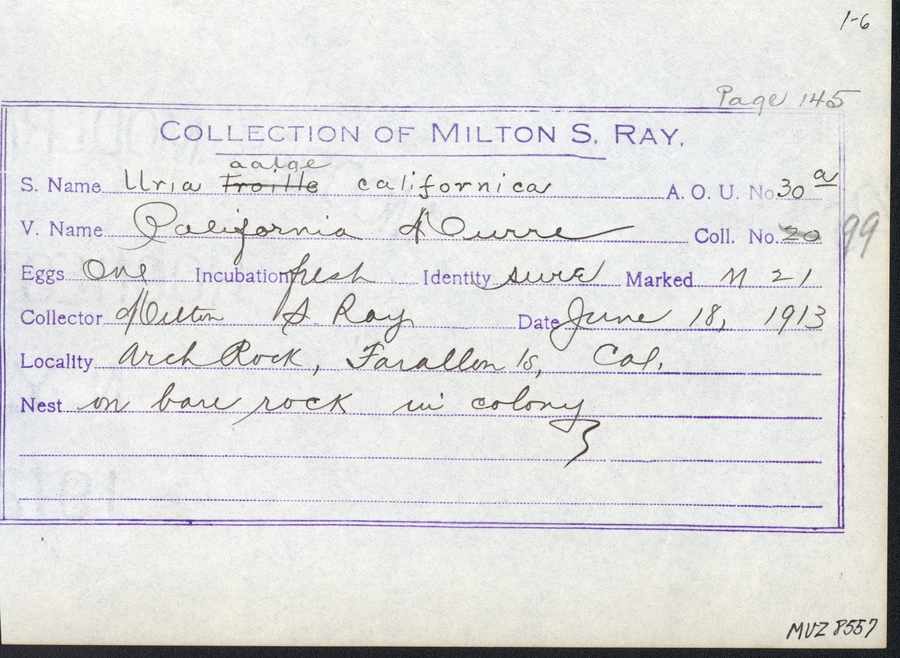 1-6
Page 145
COLLECTION OF MILTON S. RAY.
aalge
S. Name Uria Troille californica A. O. U. No. 30 a
V. Name California Murre Coll. No. 20 99
Eggs One Incubation fresh Identity sure Marked M 21
Collector Milton S. Ray Date June 18, 1913
Locality Arch Rock, Farallon Is, Cal.
Nest on bare rock in colony
MVZ 8557